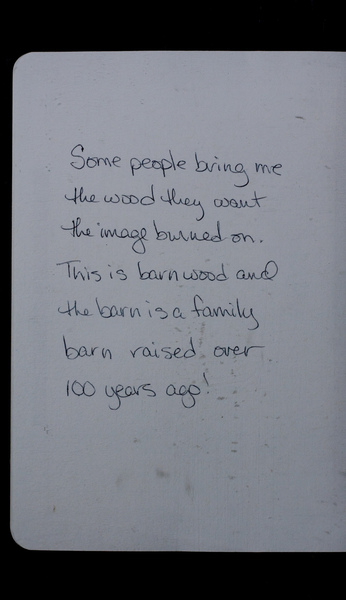 Some people bring me
the wood they want
the image burned on.
This is barn wood and
the barn is a family
barn raised over
100 years ago!